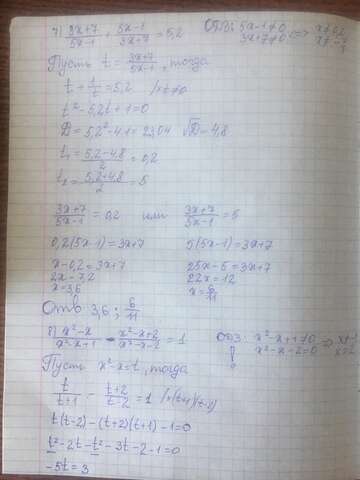 7) 3x+7/5x-1 + 5x-1/3x+7 = 5,2 ОДЗ: 5x-1≠0 3x+7≠0 => x≠0,2
Пусть t = 3x+7/5x-1, тогда
t + 1/t = 5,2 /×t≠0
t²-5,2t+1=0
D = 5,2²-4·1 = 23,04 √D=4,8
t₁ = 5,2-4,8/2 = 0,2
t₂ = 5,2+4,8/2 = 5
3x+7/5x-1 = 0,2 или 3x+7/5x-1 = 5
0,2(5x-1)=3x+7 5(5x-1)=3x+7
x-0,2=3x+7 25x-5=3x+7
2x=-7,2 22x=12
x=3,6 x=6/11
Отв 3,6; 6/11
8) x²-x/x²-x+1 - x²-x+2/x²-x-2 = 1 ОДЗ: x²-x+1≠0 x²-x-2=0 =>
Пусть x²-x=t, тогда
t/t+1 - t+2/t-2 = 1 /×(t+1)(t-2)
t(t-2)-(t+2)(t+1)-1=0
t²-2t-t²-3t-2-1=0
-5t=3